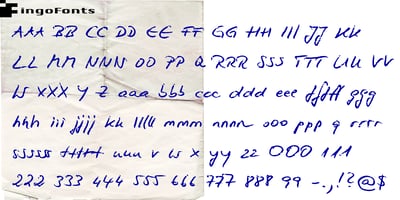 ingoFonts
AAA BB CC DD EE FF GG HH III JJ KK
LL MM NNN OO PP Q RRR SSS TTT UU VV
W XXX Y Z aaa bbb ccc ddd eee ffff ggg
hhh iii jjjj kk llll mmm nnnn ooo ppp q rrrr
sssss ttttt uuu v w x yy zz 000 111
222 333 444 555 666 777 888 99 -.,!?@$